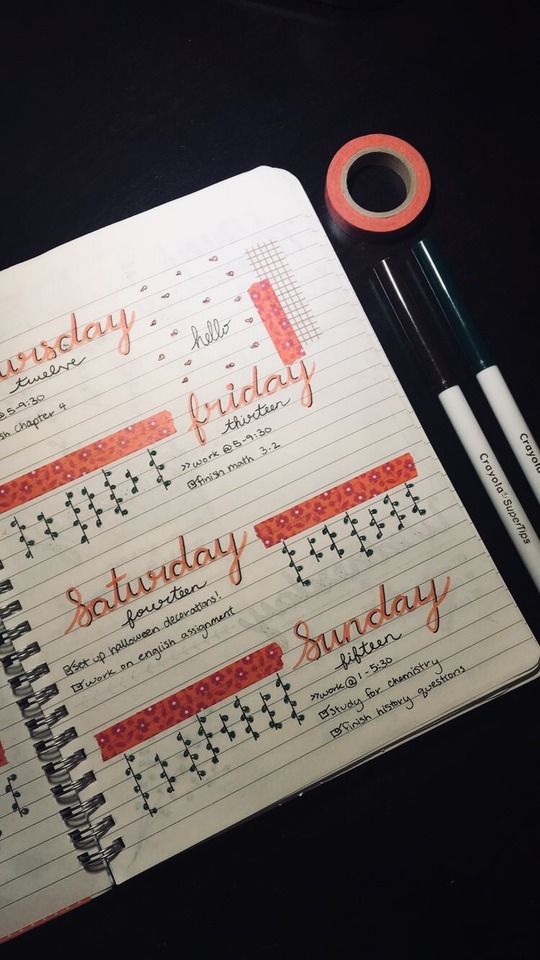 ursday
twelve
@5-9:30
sh chapter 4
hello
friday
thirteen
>>work @5-9:30
finish math 3.2
Saturday
fourteen
set up halloween decorations!
work on english assignment
Sunday
fifteen
>>work @ 1-5:30
study for chemistry
finish history questions
Crayola SuperTips
Crayola